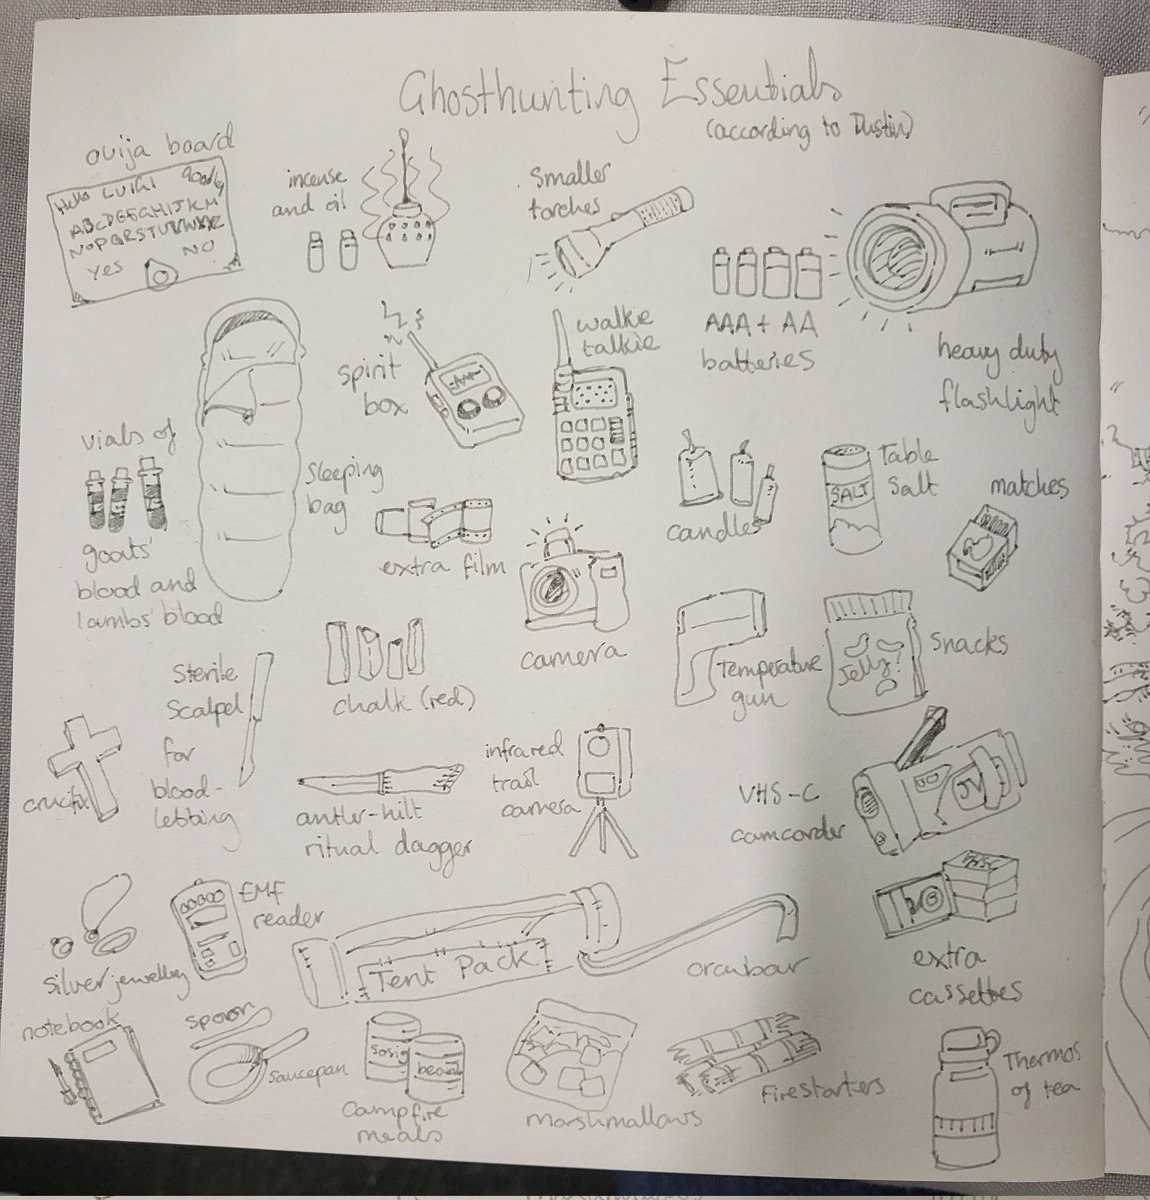 Ghosthunting Essentials
(according to Dustin)
ouija board
Hello LUIGI
ABCDEFGHIJKLM
NOPQRSTUVWXYZ
YES NO
incense
and oil
smaller
torches
AAA + AA
batteries
heavy duty
flashlight
spirit
box
walkie
talkie
vials of
goats'
blood and
lambs' blood
sleeping
bag
extra film
camera
candles
SALT
Table
Salt
matches
Sterile
Scalpel
for
blood-
letting
chalk (red)
Temperature
gun
Jelly!
snacks
crucifix
antler-hilt
ritual dagger
infrared
trail
camera
JV
VHS-C
camcorder
silver jewellry
EMF
reader
Tent Pack
crowbar
extra
cassettes
notebook
spoon
saucepan
sosig
beans
campfire
meals
marshmallows
Firestarters
Thermos
of tea